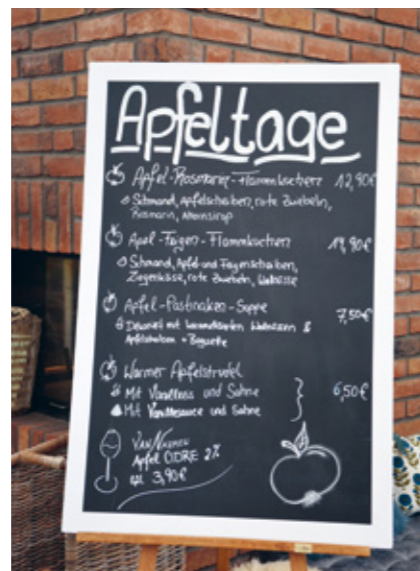 Apfeltage
Apfel-Rosmarin-Flammkuchen 12,90€
Schmand, Apfelscheiben, rote Zwiebeln,
Rosmarin, Ahornsirup
Apfel-Feigen-Flammkuchen 14,90€
Schmand, Apfel und Feigenscheiben,
Ziegenkäse, rote Zwiebeln, Walnüsse
Apfel-Pastinaken-Suppe 7,50€
mit karamellisierten Walnüssen &
+ Baguette
Warmer Apfelstrudel
Mit Vanilleeis und Sahne 6,50€
Mit Vanillesauce und Sahne
Van Nahmen
Apfel CIDRE 2%
3,90€